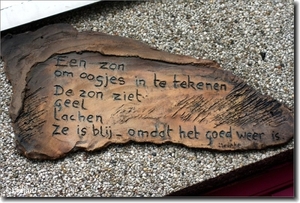 Een zon
om oogjes in te tekenen
De zon ziet
geel
lachen
ze is blij - omdat het goed weer is